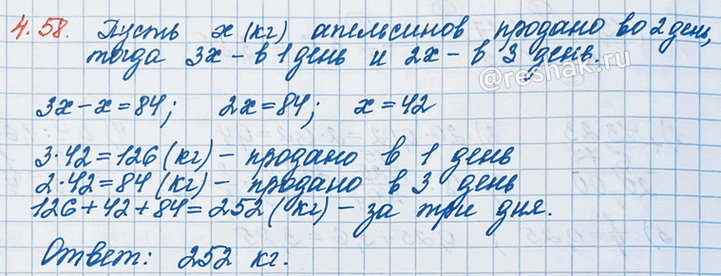 4.58. Пусть x (кг) апельсинов продано во 2 день,
тогда 3x - в 1 день и 2x - в 3 день.
@reshak.ru
3x - x = 84; 2x = 84; x = 42
3·42 = 126 (кг) - продано в 1 день
2·42 = 84 (кг) - продано в 3 день
126 + 42 + 84 = 252 (кг) - за три дня.
Ответ: 252 кг.